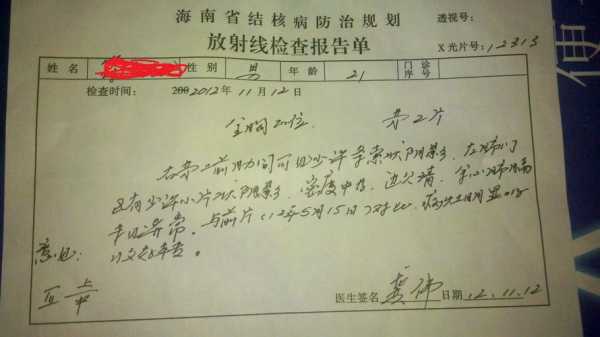 海南省结核病防治规划 透视号:
放射线检查报告单 X光片号:12313
姓名 性别 男 年龄 21 门诊序号
检查时间: 2002012年11月12日
全胸正位 第2片
右第2前肋间可见少许条索状阴影,左肺门
区有少许小片状阴影,密度中等,边欠清,余心肺膈
未见异常。与前片(12年5月15日)对比,病灶明显吸
意见:
医生签名 龚伟 日期 12.11.12